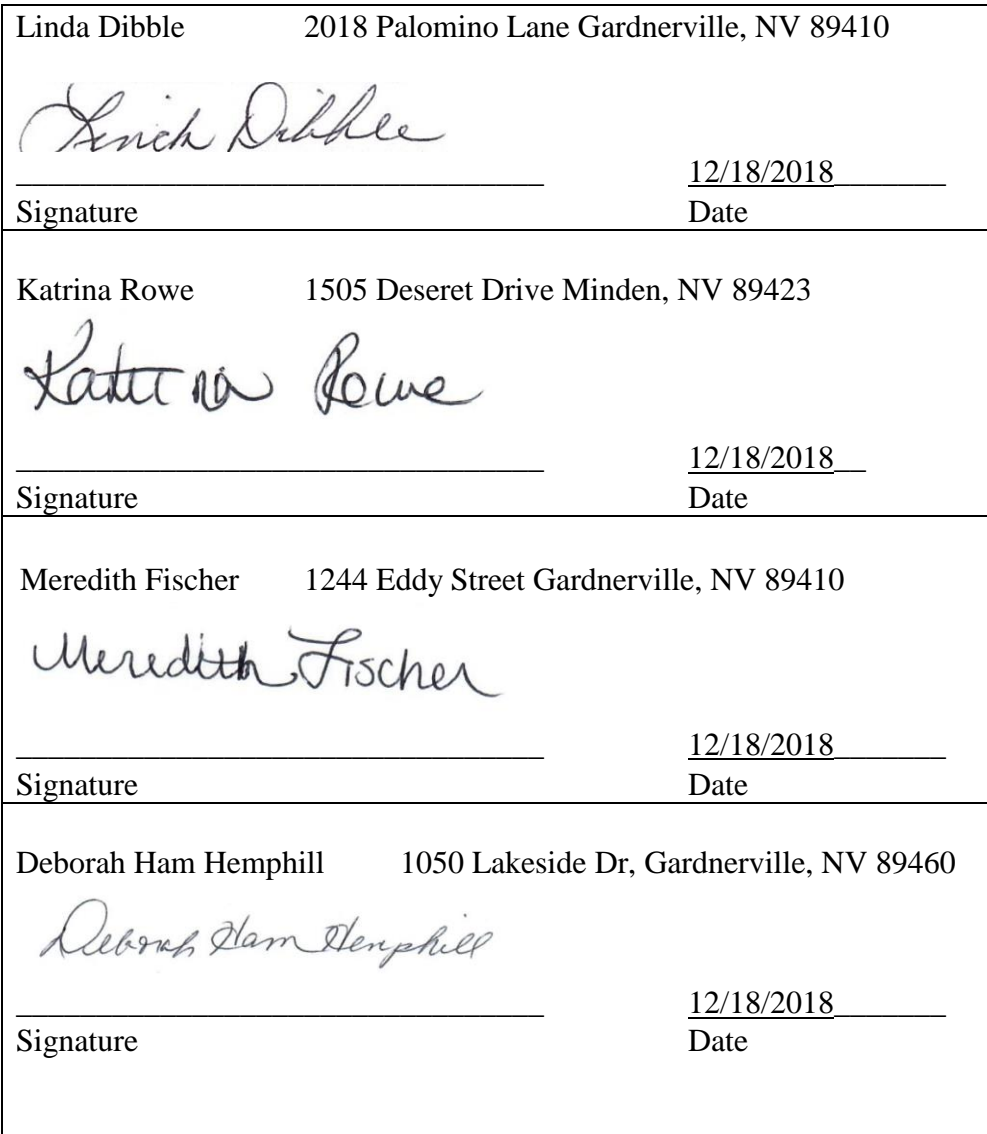 Linda Dibble 2018 Palomino Lane Gardnerville, NV 89410
Linda Dibble
__________________________________ 12/18/2018_______
Signature Date
Katrina Rowe 1505 Deseret Drive Minden, NV 89423
Katrina Rowe
__________________________________ 12/18/2018__
Signature Date
Meredith Fischer 1244 Eddy Street Gardnerville, NV 89410
Meredith Fischer
__________________________________ 12/18/2018_______
Signature Date
Deborah Ham Hemphill 1050 Lakeside Dr, Gardnerville, NV 89460
Deborah Ham Hemphill
__________________________________ 12/18/2018_______
Signature Date